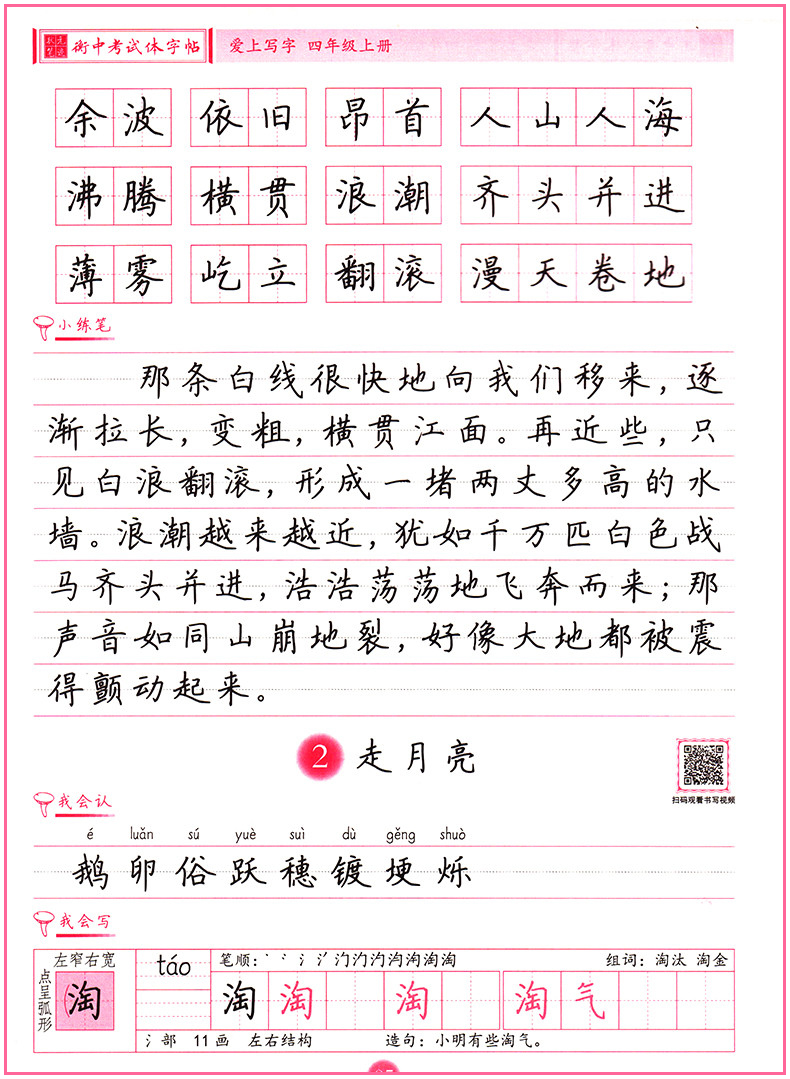 状元笔迹 衡中考试体字帖 爱上写字 四年级上册
余波 依旧 昂首 人山人海
沸腾 横贯 浪潮 齐头并进
薄雾 屹立 翻滚 漫天卷地
小练笔
那条白线很快地向我们移来，逐
渐拉长，变粗，横贯江面。再近些，只
见白浪翻滚，形成一堵两丈多高的水
墙。浪潮越来越近，犹如千万匹白色战
马齐头并进，浩浩荡荡地飞奔而来；那
声音如同山崩地裂，好像大地都被震
得颤动起来。
2 走月亮
扫码观看书写视频
我会认
é luǎn sú yuè suì dù gěng shuò
鹅 卵 俗 跃 穗 镀 埂 烁
我会写
左窄右宽 táo 笔顺： 组词：淘汰 淘金
点呈弧形 淘 淘 淘 淘 淘 气
氵部 11画 左右结构 造句：小明有些淘气。